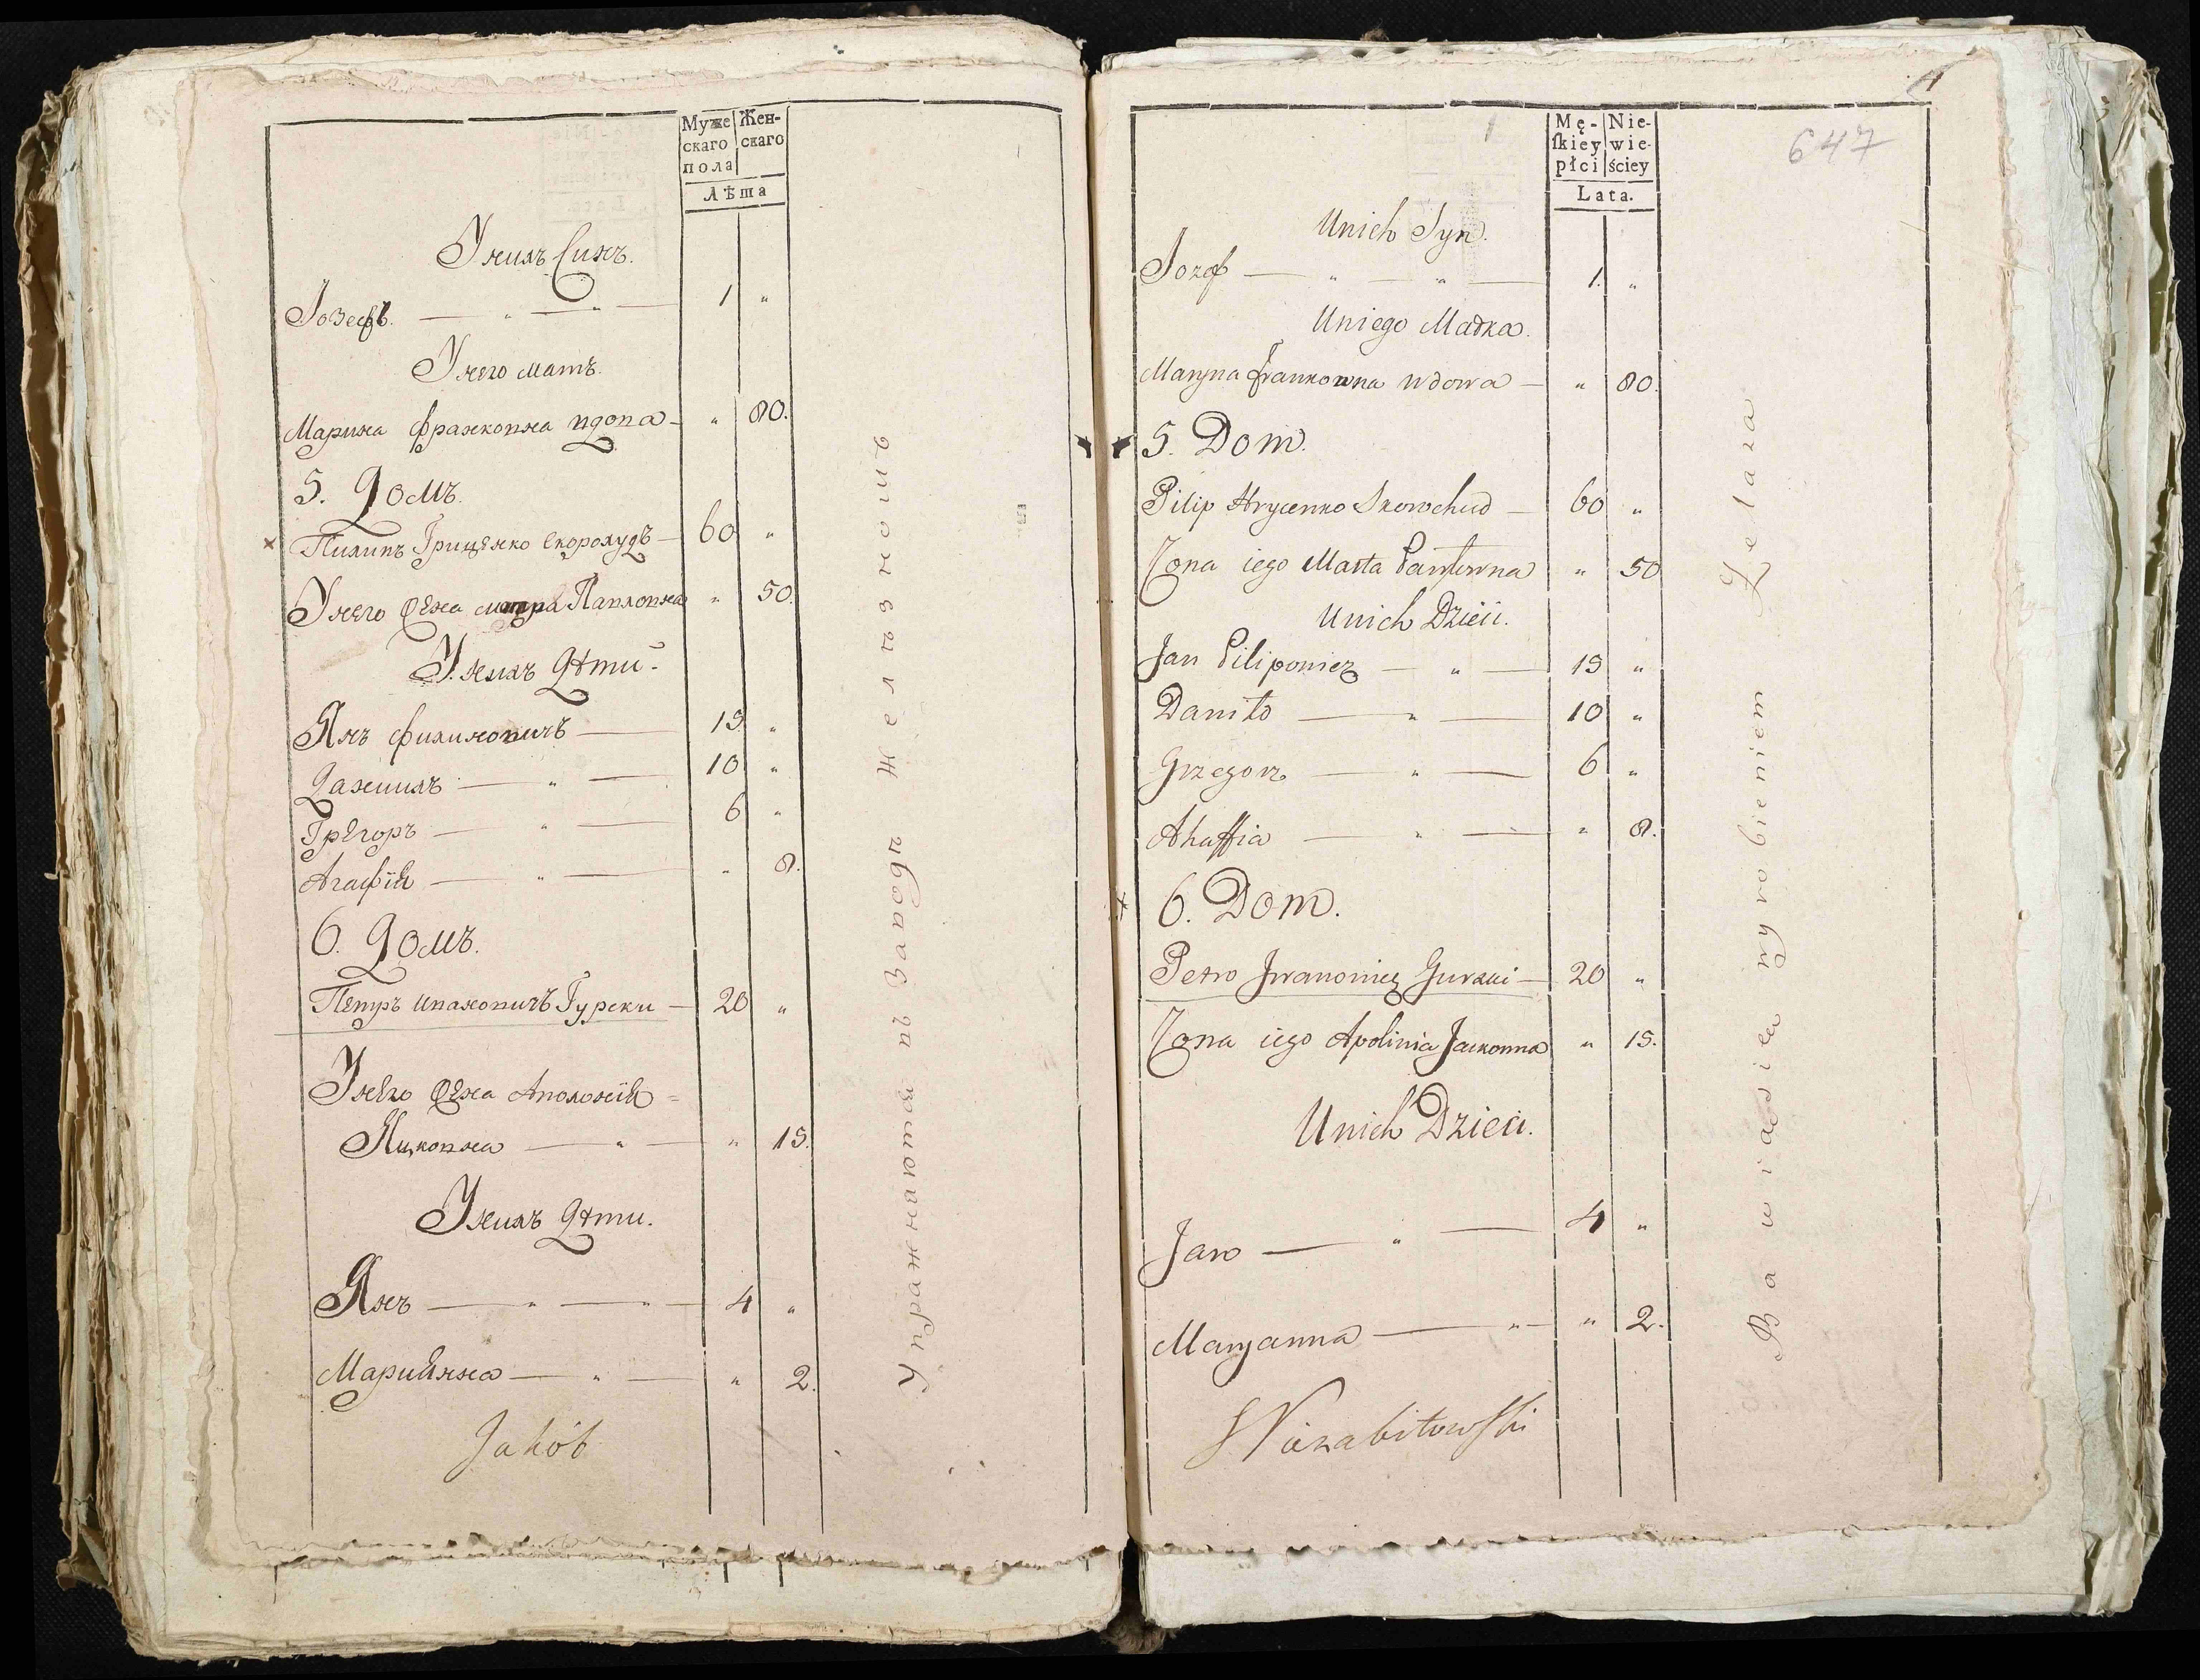 Муже Жен-
скаго скаго
пола
Лѣта
Унихъ Синъ.
Іозефъ. — " — " — 1 "
Унего мать.
Марина франковна вдова — " 80.
5. Домъ.
× Пилипъ Гриценко Скороходъ — 60 "
Унего Жена Павловна " 50.
Унихъ Дѣти.
Янъ филиповичъ — 15 "
Данилъ — " — 10 "
Грегоръ — " — 6 "
Агафія — " — " 8.
6. Домъ.
Петръ Ивановичъ Гурски — 20 "
Унего Жена Аполонія =
Яцковна — " — " 15.
Унихъ Дѣти.
Янъ — " — " — 4 "
Марияна — " — " 2.
Jakób
Упражнаются въ Заводѣ Желѣзномъ
647
Mę- Nie-
ſkiey wie-
płci ściey
Lata.
Unich Syn.
Jozef — " — " — 1. "
Uniego Matka.
Maryna Frankowna wdowa — " 80.
5. Dom.
Pilip Hrycenko Skorochud — 60 "
Zona iego Marta Pawłowna " 50
Unich Dzieci.
Jan Filipowicz — " — 15 "
Daniło — " — 10 "
Grzegorz — " — 6 "
Ahaffia — " — " 8.
6. Dom.
Petro Jwanowicz Gurski — 20 "
Zona iego Apolinia Jackowna " 15.
Unich Dzieci.
Jan — " — 4 "
Maryanna — " — " 2.
Bawią się wyrobieniem Żelaza